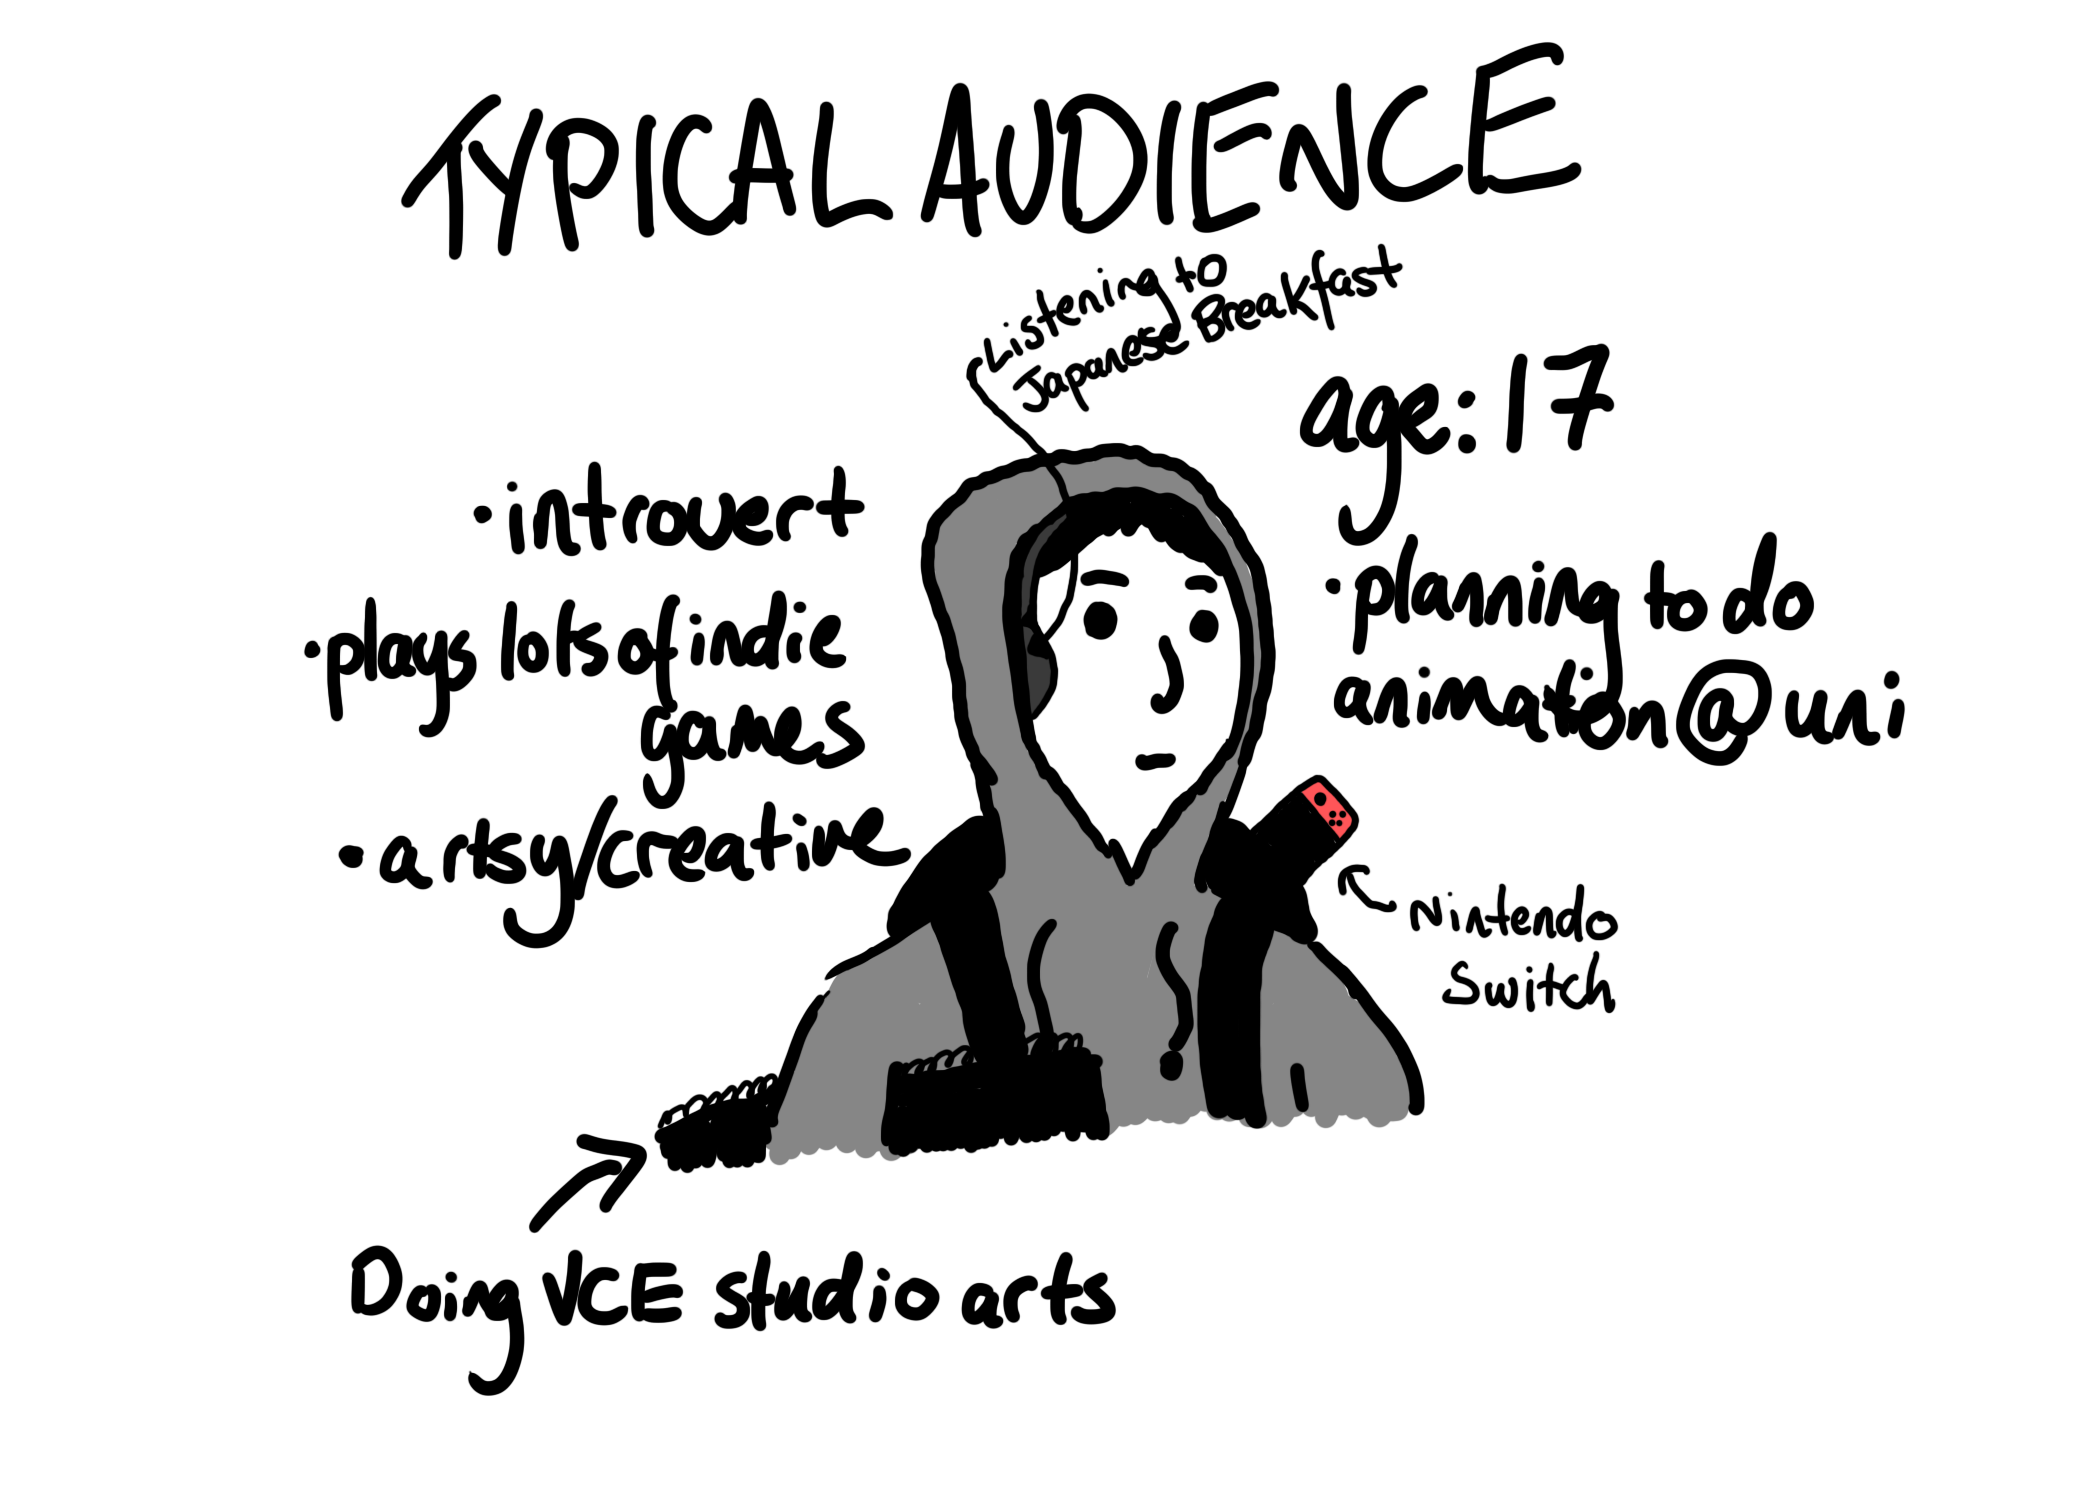 TYPICAL AUDIENCE
Listening to
Japanese Breakfast
age: 17
• introvert
• plays lots of indie
games
• artsy/creative
• planning to do
animation @ uni
Nintendo
Switch
Doing VCE studio arts